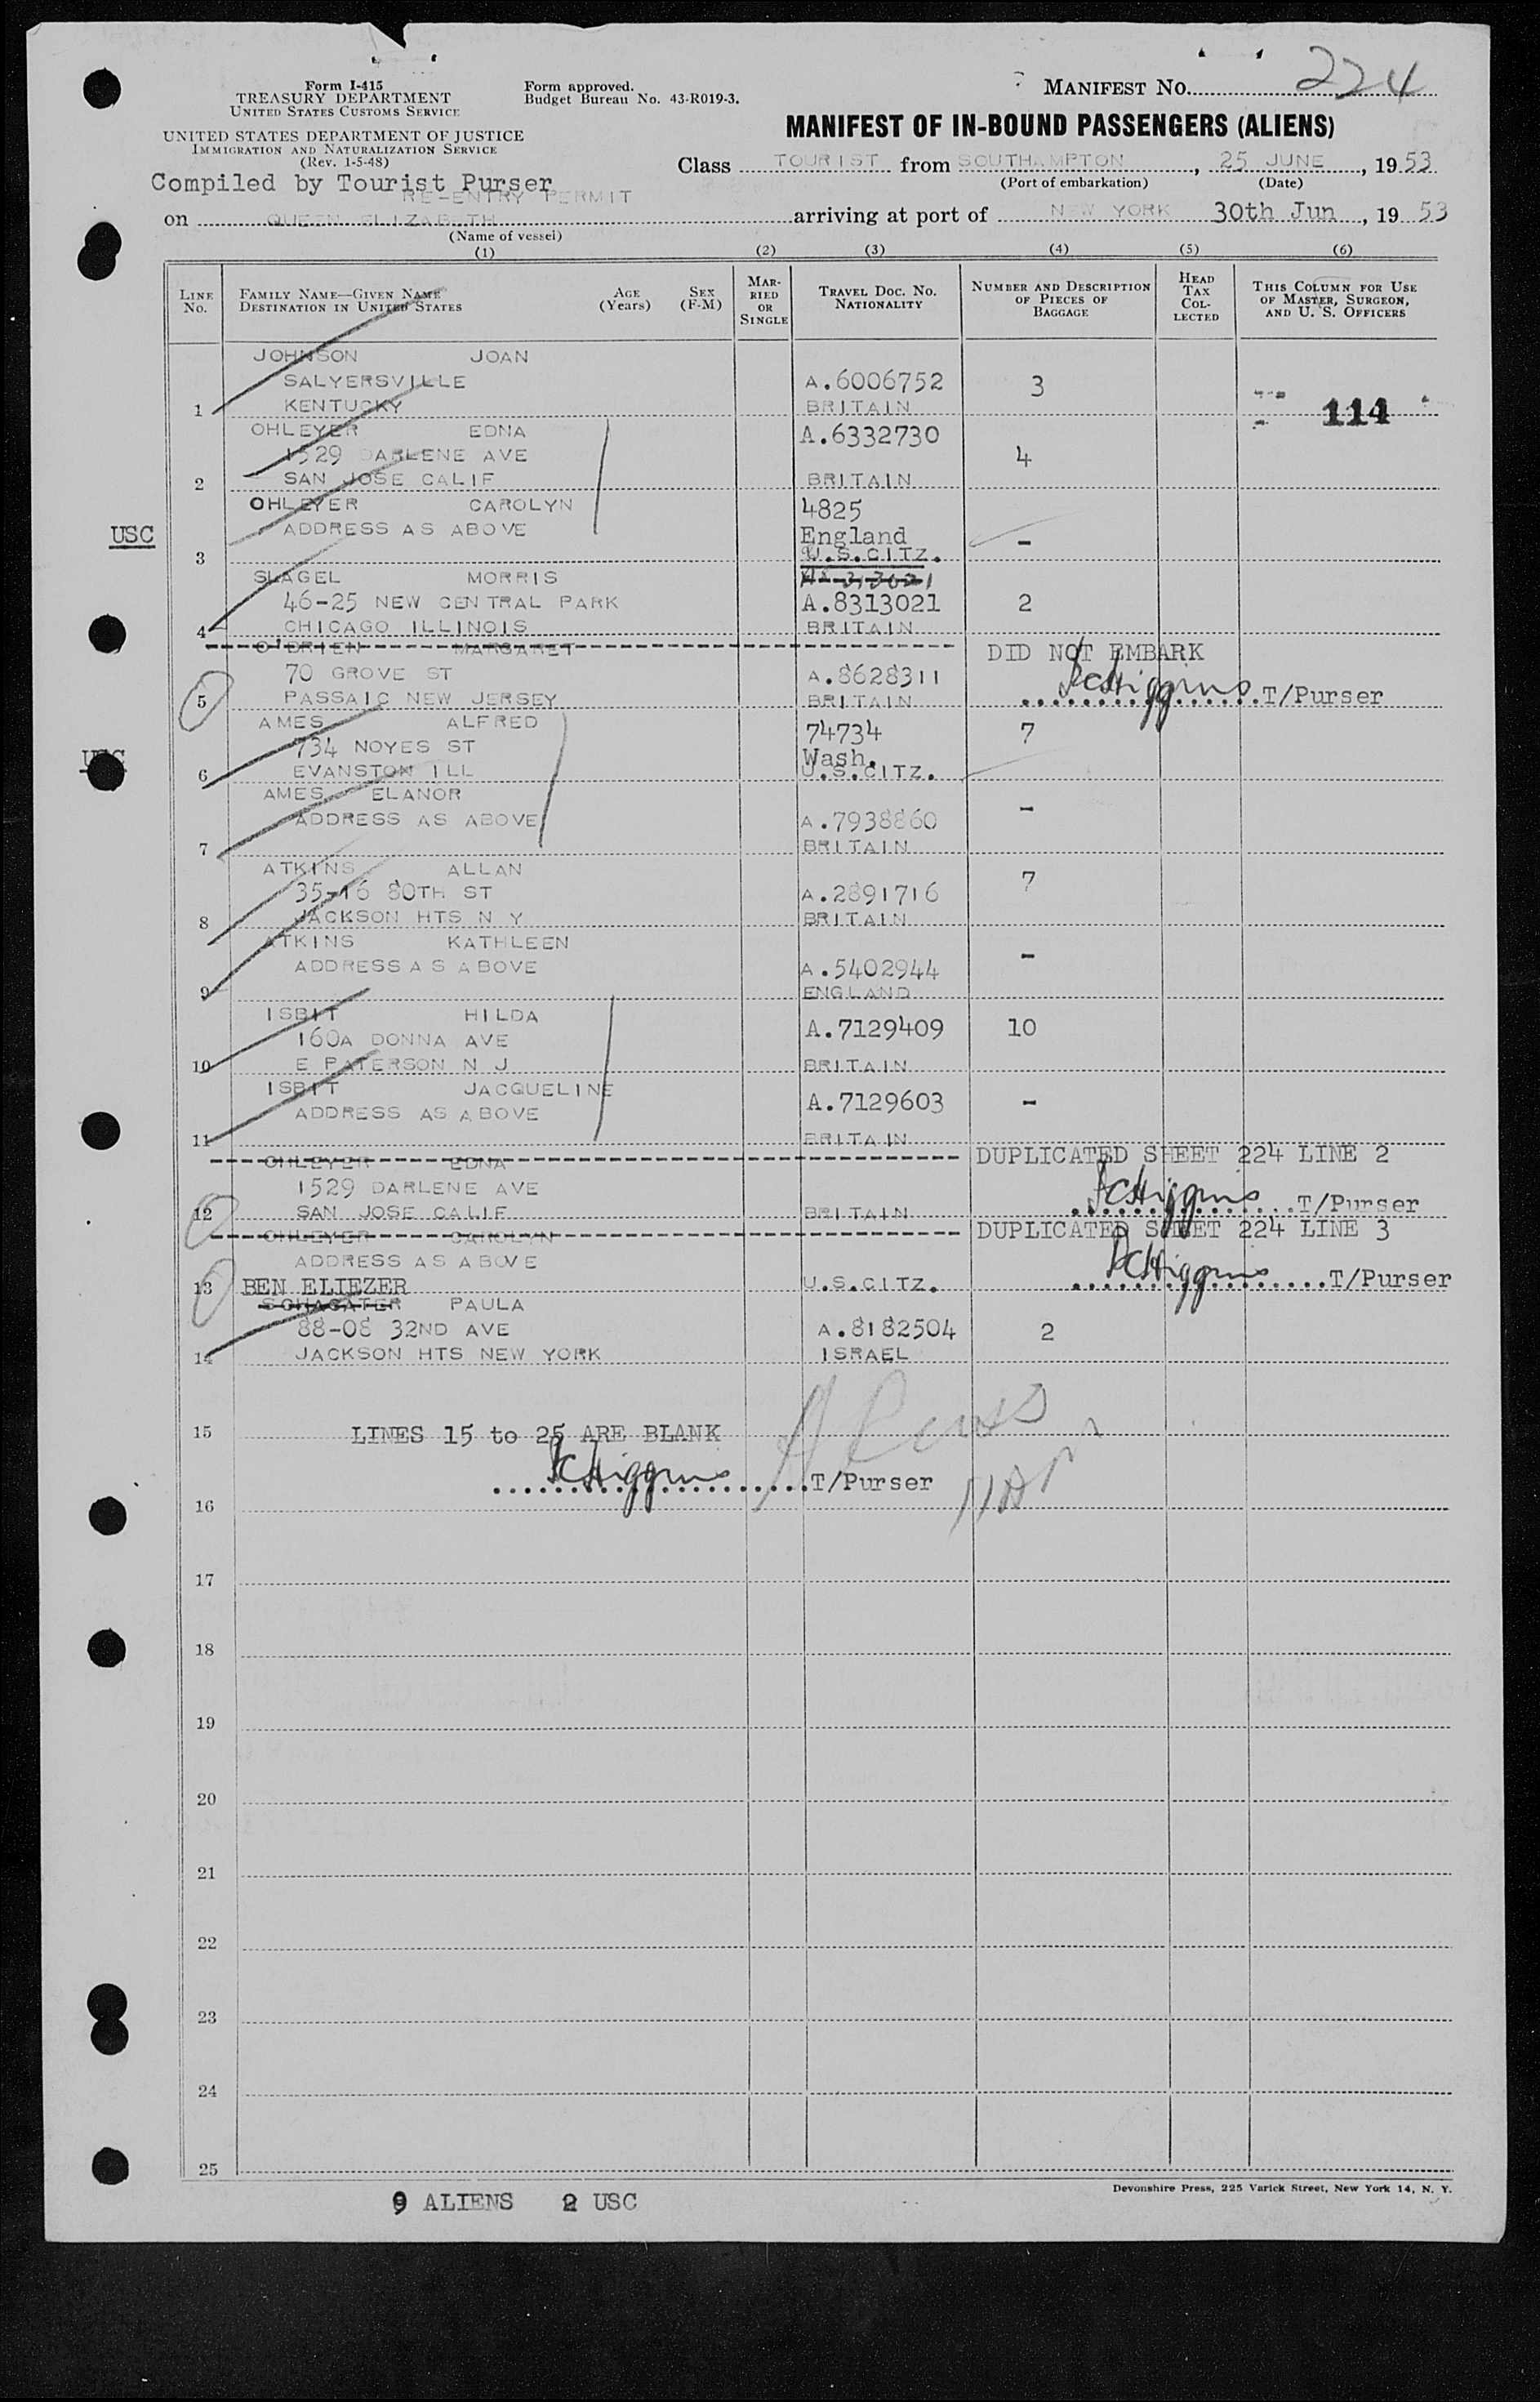 Form I-415
TREASURY DEPARTMENT
UNITED STATES CUSTOMS SERVICE
UNITED STATES DEPARTMENT OF JUSTICE
IMMIGRATION AND NATURALIZATION SERVICE
(Rev. 1-5-48)
Form approved.
Budget Bureau No. 43-R019-3.
MANIFEST No. 224
MANIFEST OF IN-BOUND PASSENGERS (ALIENS)
Class TOURIST from SOUTHAMPTON, 25 JUNE, 1953
(Port of embarkation) (Date)
Compiled by Tourist Purser
RE-ENTRY PERMIT
on QUEEN ELIZABETH arriving at port of NEW YORK 30th Jun, 1953
(Name of vessel)
(1) (2) (3) (4) (5) (6)
LINE No.
FAMILY NAME—GIVEN NAME
DESTINATION IN UNITED STATES
AGE (Years)
SEX (F-M)
MARRIED OR SINGLE
TRAVEL DOC. NO.
NATIONALITY
NUMBER AND DESCRIPTION OF PIECES OF BAGGAGE
HEAD TAX COLLECTED
THIS COLUMN FOR USE OF MASTER, SURGEON, AND U. S. OFFICERS
JOHNSON JOAN
SALYERSVILLE A.6006752 3
1 KENTUCKY BRITAIN 114
OHLEYER EDNA A.6332730
1529 DARLENE AVE 4
2 SAN JOSE CALIF BRITAIN
OHLEYER CAROLYN 4825
USC ADDRESS AS ABOVE England -
3 U.S.CITZ.
SLAGEL MORRIS
46-25 NEW CENTRAL PARK A.8313021 2
4 CHICAGO ILLINOIS BRITAIN
O'BRIEN MARGARET DID NOT EMBARK
70 GROVE ST A.8628311
5 PASSAIC NEW JERSEY BRITAIN Higgins T/Purser
AMES ALFRED 74734 7
USC 734 NOYES ST Wash.
6 EVANSTON ILL U.S.CITZ.
AMES ELANOR -
ADDRESS AS ABOVE A.7938860
7 BRITAIN
ATKINS ALLAN 7
35-16 80TH ST A.2891716
8 JACKSON HTS N Y BRITAIN
ATKINS KATHLEEN -
ADDRESS AS ABOVE A.5402944
9 ENGLAND
ISBIT HILDA
160A DONNA AVE A.7129409 10
10 E PATERSON N J BRITAIN
ISBIT JACQUELINE
ADDRESS AS ABOVE A.7129603 -
11 BRITAIN
OHLEYER EDNA DUPLICATED SHEET 224 LINE 2
1529 DARLENE AVE
12 SAN JOSE CALIF BRITAIN Higgins T/Purser
OHLEYER CAROLYN DUPLICATED SHEET 224 LINE 3
ADDRESS AS ABOVE
13 U.S.CITZ. Higgins T/Purser
BEN ELIEZER
SCHACATER PAULA
88-08 32ND AVE A.8182504 2
14 JACKSON HTS NEW YORK ISRAEL
15 LINES 15 to 25 ARE BLANK
Higgins T/Purser
16
17
18
19
20
21
22
23
24
25
9 ALIENS 2 USC
Devonshire Press, 225 Varick Street, New York 14, N. Y.